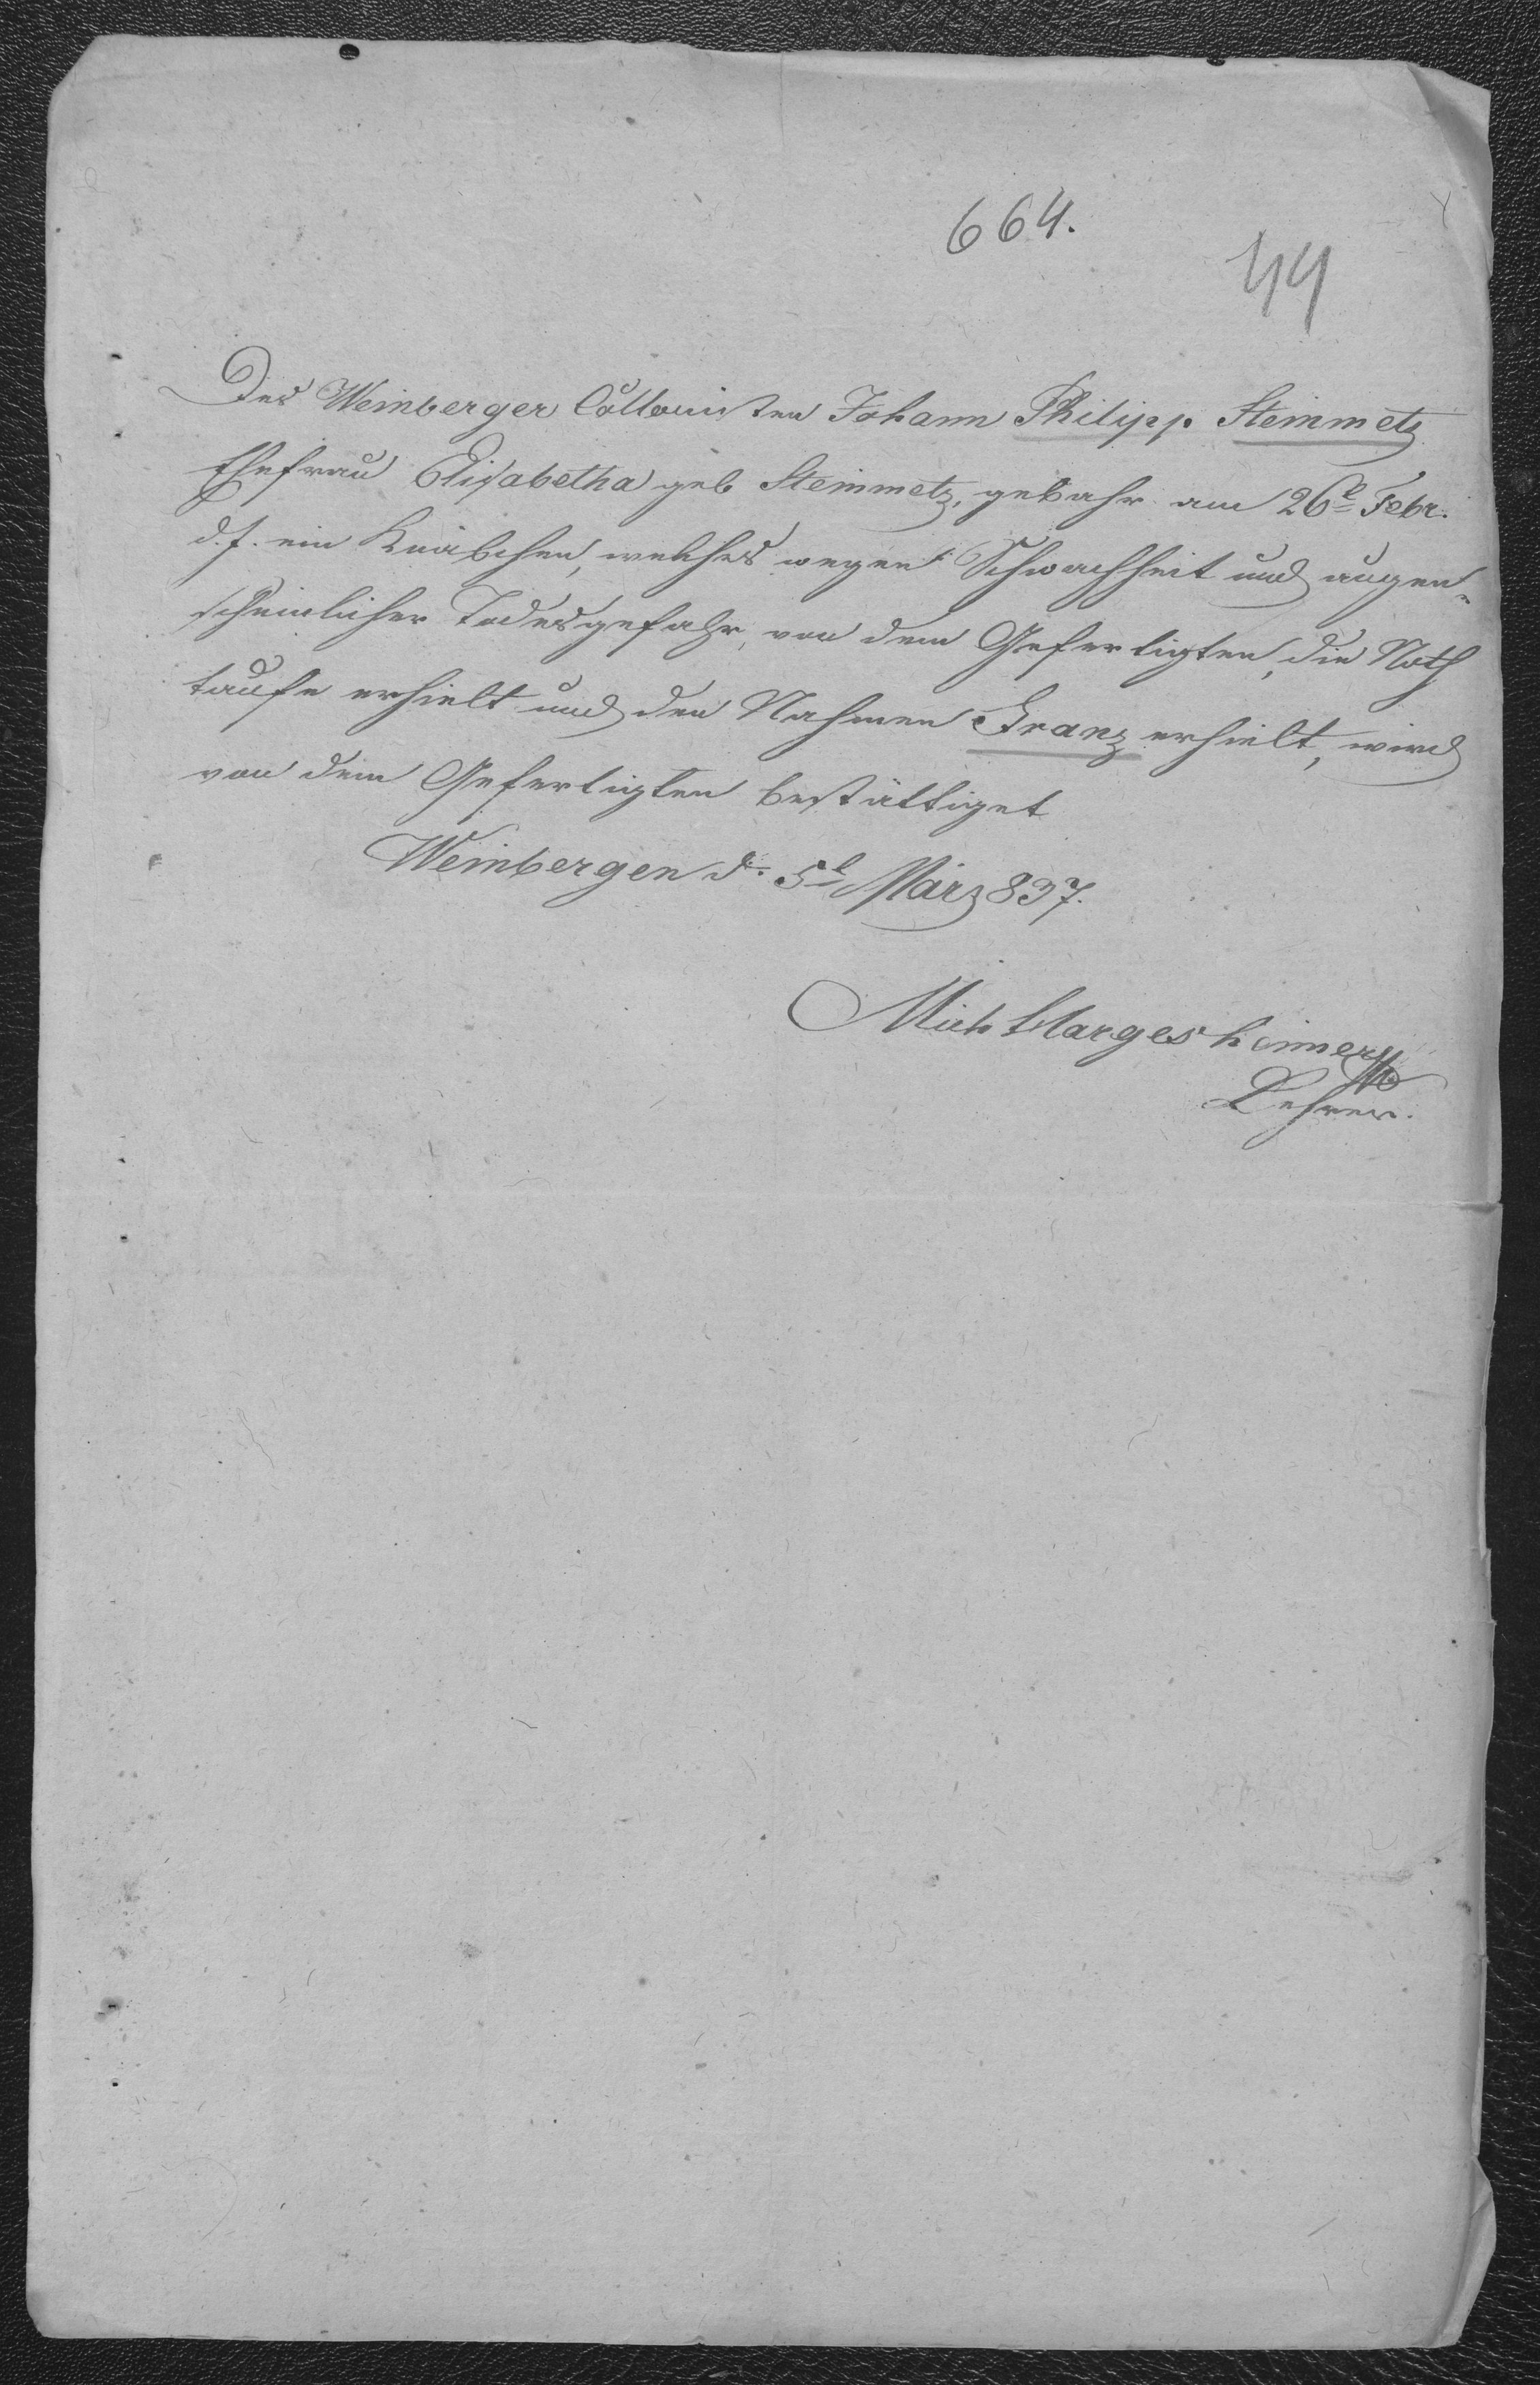 664.
44
Des Weinberger Collonisten Johann Philipp Steinmetz
Ehefrau Elisabetha geb Steinmetz, gebahr am 26t Febr.
d. J. ein Knäbchen, welches wegen Schwachheit und augen-
scheinlicher Todesgefahr, von dem Gefertigten, die Noth
taufe erhielt und den Nahmen Franz erhielt, wird
von dem Gefertigten bestättiget
Weinbergen d. 5t März 837.
Mich Hargesheimer
Lehrer.